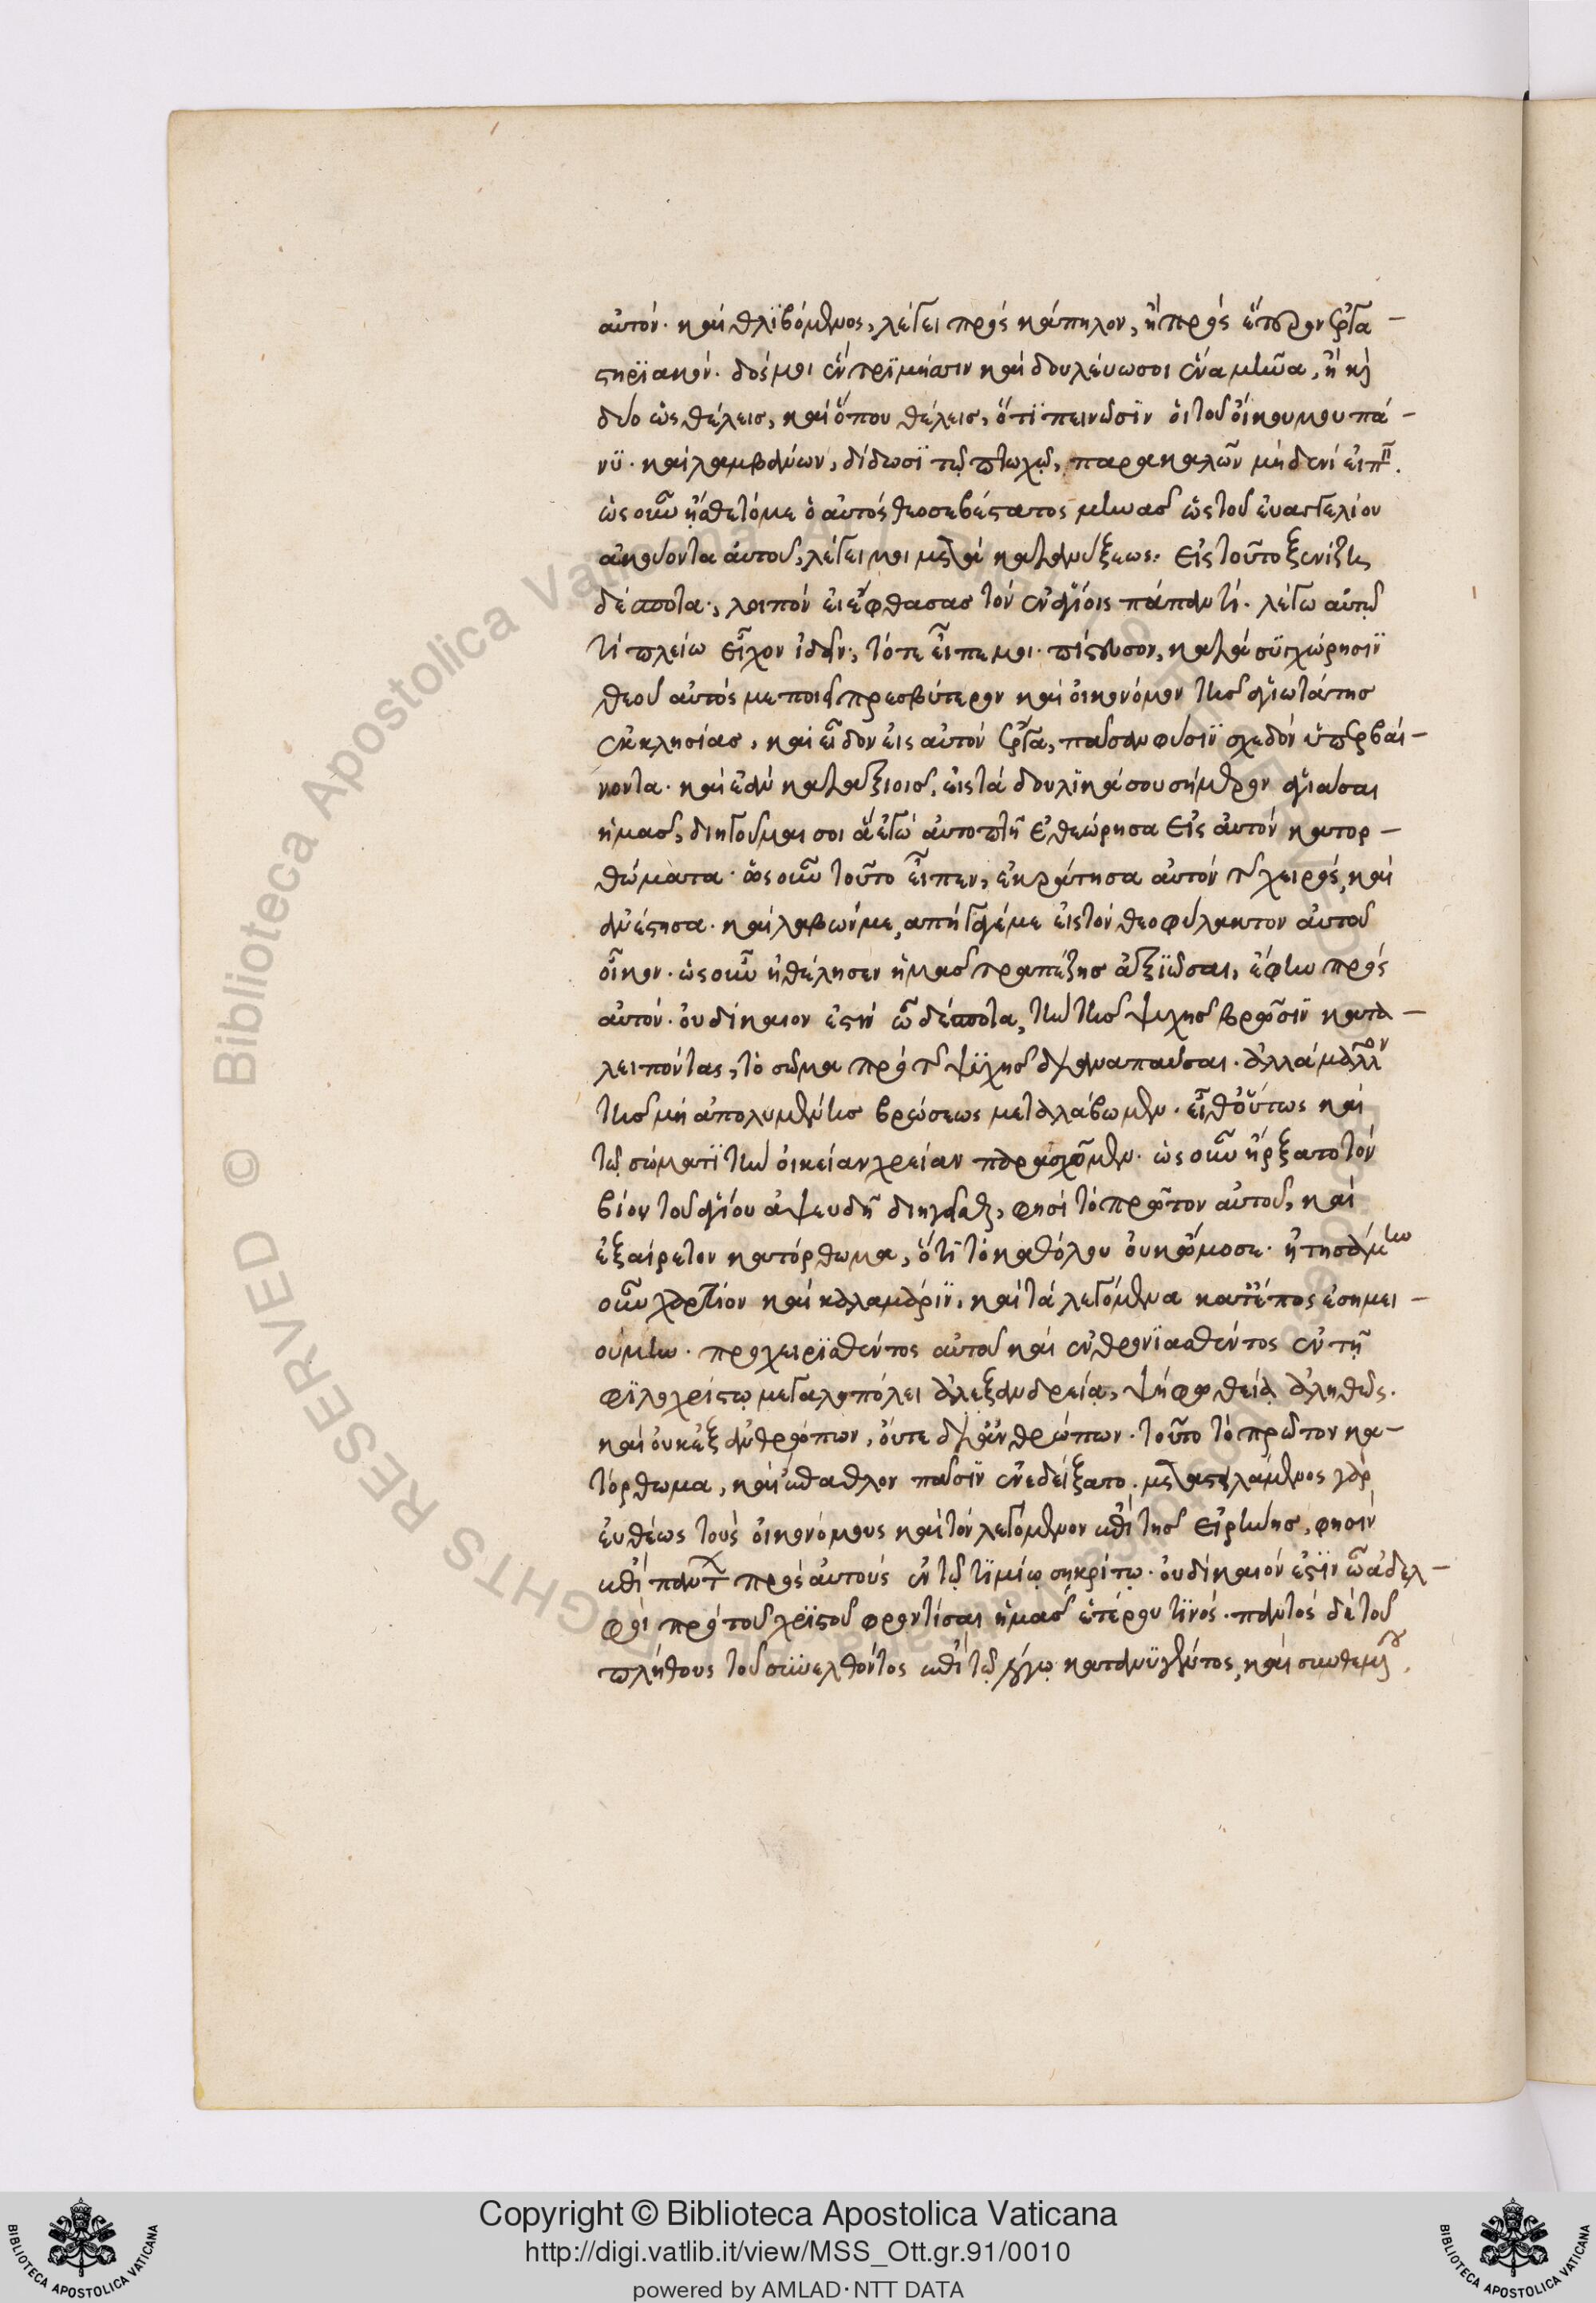 αὐτόν. καὶ θλϊβόμενος, λέγει πρὸς κάπηλον, ἢ πρὸς ἕτερον ἐργα-
στηρϊακόν. δός μοι ἓν τρϊμήσιν καὶ δουλεύω σοι ἕνα μῆνα, ἢ κὶ
δύο ὡς θέλεισ, καὶ ὅπου θέλεισ, ὅτϊ πεινῶσϊν οἱ τοῦ οἴκου μου πά-
νϋ. καὶ λαμβάνων, δίδωσϊ τῷ πτωχῷ, παρακαλῶν μὴδενὶ εἰπῆ.
ὡς οὖν ᾔσθετό με ὁ αὐτὸς θεοσεβέστατος μηνασ ὡς τοῦ ευαγγελίου
ἀκούοντα αὐτοῦ, λέγει μοι μετὰ κατανύξεως. Εἰς τοῦτο ξενίζῃς
δέσποτα., λοιπὸν εἰ ἔφθασασ τὸν ἐν ἁγίοις πάπαν τί. λέγω αὐτῷ
τί πλείω εἶχον ἰδεῖν., τότε εἶπε μοι. πίστευσον, κατὰ συγχώρησιϊ
θεοῦ αὐτός με ποιεῖ πρεσβύτερον καὶ οἰκονόμον τῆσ ἁγιωτάτησ
ἐκκλησίασ, καὶ εἶδον εἰς αὐτὸν ἔργα, πᾶσαν φύσιϊ σχεδὸν ὑπερβαί-
νοντα. καὶ ἐὰν καταξιοῖσ, εἰς τὰ δουλϊκά σου σήμερον ἁγιάσαι
ἡμᾶσ, διηγοῦμαι σοι ἃ ἐγὼ αὐτοπτὴ ἐθεώρησα εἰς αὐτὸν κατορ-
θώματα. ὡς οὖν τοῦτο εἶπεν, ἐκράτησα αὐτὸν τῆς χειρὸς, καὶ
ἀνέστησα. καὶ λαβών με, ἀπήγαγέ με εἰς τὸν θεοφύλακτον αὐτοῦ
οἶκον. ὡς οὖν ἠθέλησεν ἡμᾶσ τραπέζησ ἀξϊῶσαι, ἔφην πρὸς
αὐτόν. οὐ δίκαιον ἐστὶν ὦ δέσποτα, τὴν τῆσ ψυχῆσ βρῶσϊν κατα-
λειπόντας, τὸ σῶμα πρὸ τῆς ψϋχῆσ διαναπαῦσαι. ἀλλὰ μᾶλλον
τῆσ μὴ ἀπολυμένησ βρώσεως μεταλάβωμεν. εἶθ οὕτως καὶ
τῷ σώματϊ τὴν οἰκείαν χρείαν παράσχωμεν. ὡς οὖν ἤρξατο τὸν
βίον τοῦ ἁγίου ἀψευδῆ διηγεῖσθαι, φησὶ τὸ πρῶτον αὐτοῦ, καὶ
ἐξαίρετον κατόρθωμα, ὅτϊ τὸ καθόλου οὐκ ὤμοσε. ἠτησάμην
οὖν χαρτίον καὶ καλαμάριϊ, καὶ τὰ λεγόμενα κατ' ἔπος ἐσημει-
ούμην. προχειρϊσθέντος αὐτοῦ καὶ ἐνθρονϊασθέντος ἐν τῇ
φϊλοχρίστῳ μεγαλοπόλει ἀλεξανδρείᾳ, ψήφῳ θείᾳ ἀληθῶς.
καὶ οὐκ ἐξ ἀνθρώπων, οὔτε δι' ἀνθρώπων. τοῦτο τὸ πρῶτον κα-
τόρθωμα, καὶ ἔπαθλον πᾶσϊν ἐνεδείξατο. μεταστειλάμενος γὰρ
εὐθέως τοὺς οἰκονόμους καὶ τὸν λεγόμενον ἐπὶ τῆσ εἰρήνησ, φησὶν
ἐπὶ πάντων πρὸς αὐτοὺς ἐν τῷ τϊμίῳ σηκρίτῳ. οὐ δίκαιόν ἐστϊν ὦ ἀδελ-
φοὶ πρὸ τοῦ χρϊστοῦ φροντίσαι ἡμᾶσ ἑτέρου τϊνός. παντὸς δὲ τοῦ
πλήθους τοῦ συνελθόντος ἐπὶ τῷ λόγῳ κατανϋγέντος, καὶ συνθεμένου,
Copyright © Biblioteca Apostolica Vaticana
http://digi.vatlib.it/view/MSS_Ott.gr.91/0010
powered by AMLAD·NTT DATA